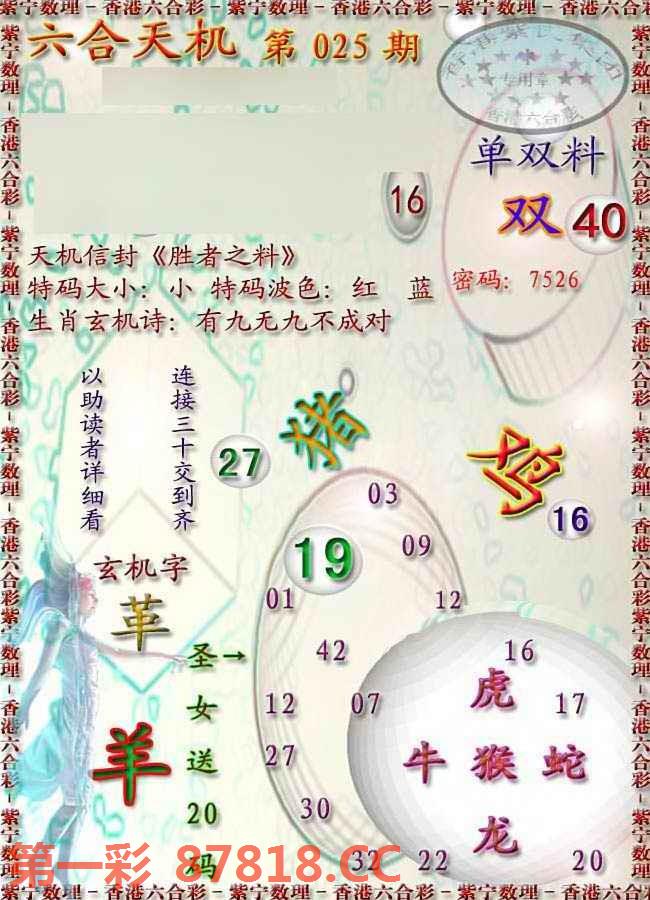 紫宁数理－香港六合彩－紫宁数理－香港六合彩－紫宁数理
六合天机 第 025 期
专用章
香港六合彩
单双料
16
双 40
天机信封《胜者之料》
特码大小：小 特码波色：红 蓝 密码：7526
生肖玄机诗：有九无九不成对
以助读者详细看
连接三十交到齐
27
猪
鸡
16
03
19
09
玄机字
革
01
12
圣→
女
送
20
码
羊
42
16
12
07
虎
17
27
牛 猴 蛇
30
龙
32
22
20
第一彩 87818.CC
紫宁数理－香港六合彩－紫宁数理－香港六合彩－紫宁数理